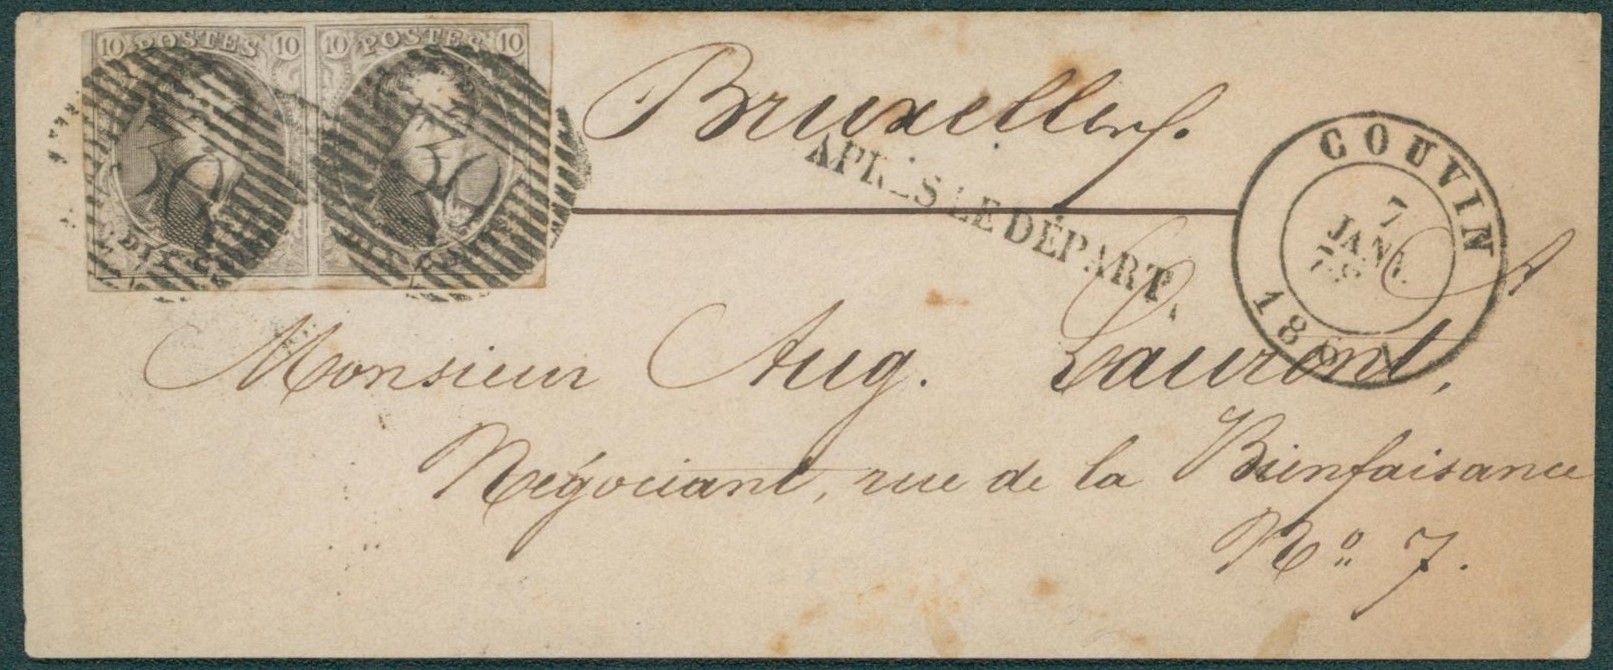 10 POSTES 10 10 POSTES 10
30 30
DIX
Bruxelles.
APRÈS LE DÉPART
COUVIN
7
JANV.
186
Monsieur Aug. Laurent,
Négociant, rue de la Bienfaisance
No 7.